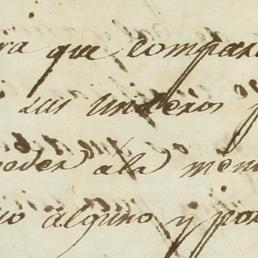 ra que compar
sus linderos p
poder ala men
io alguno y por